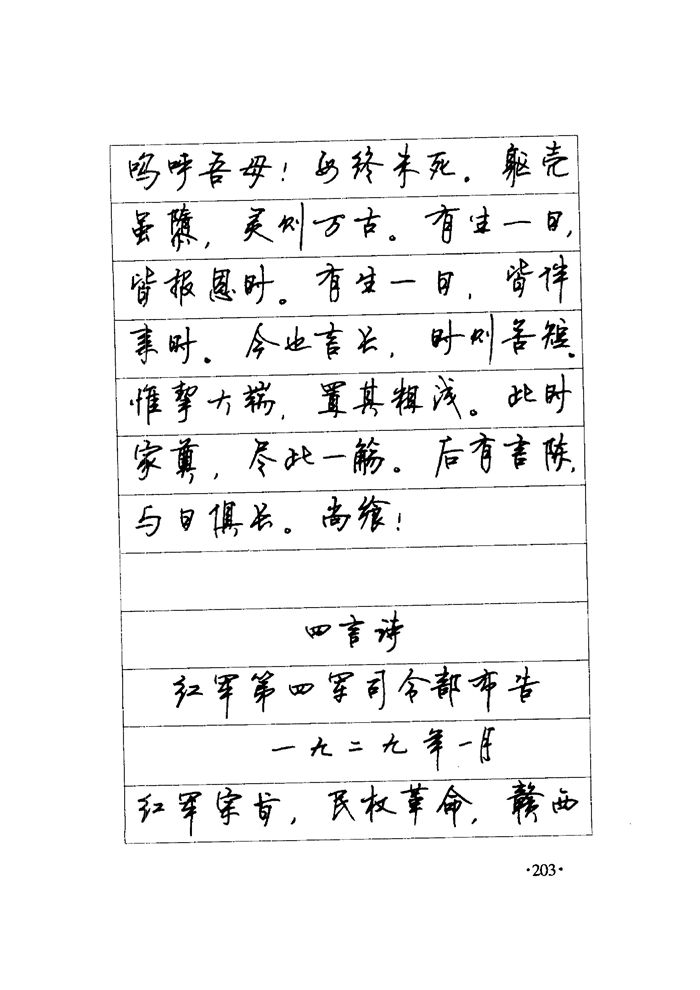 呜呼吾母！母终未死。躯壳
虽隳，灵则万古。有生一日，
皆报恩时。有生一日，皆伴
亲时。今也言长，时则苦短。
惟挈大端，置其粗浅。此时
家奠，尽此一觞。后有言陈，
与日俱长。尚飨！
四言诗
红军第四军司令部布告
一九二九年一月
红军宗旨，民权革命，赣西
·203·